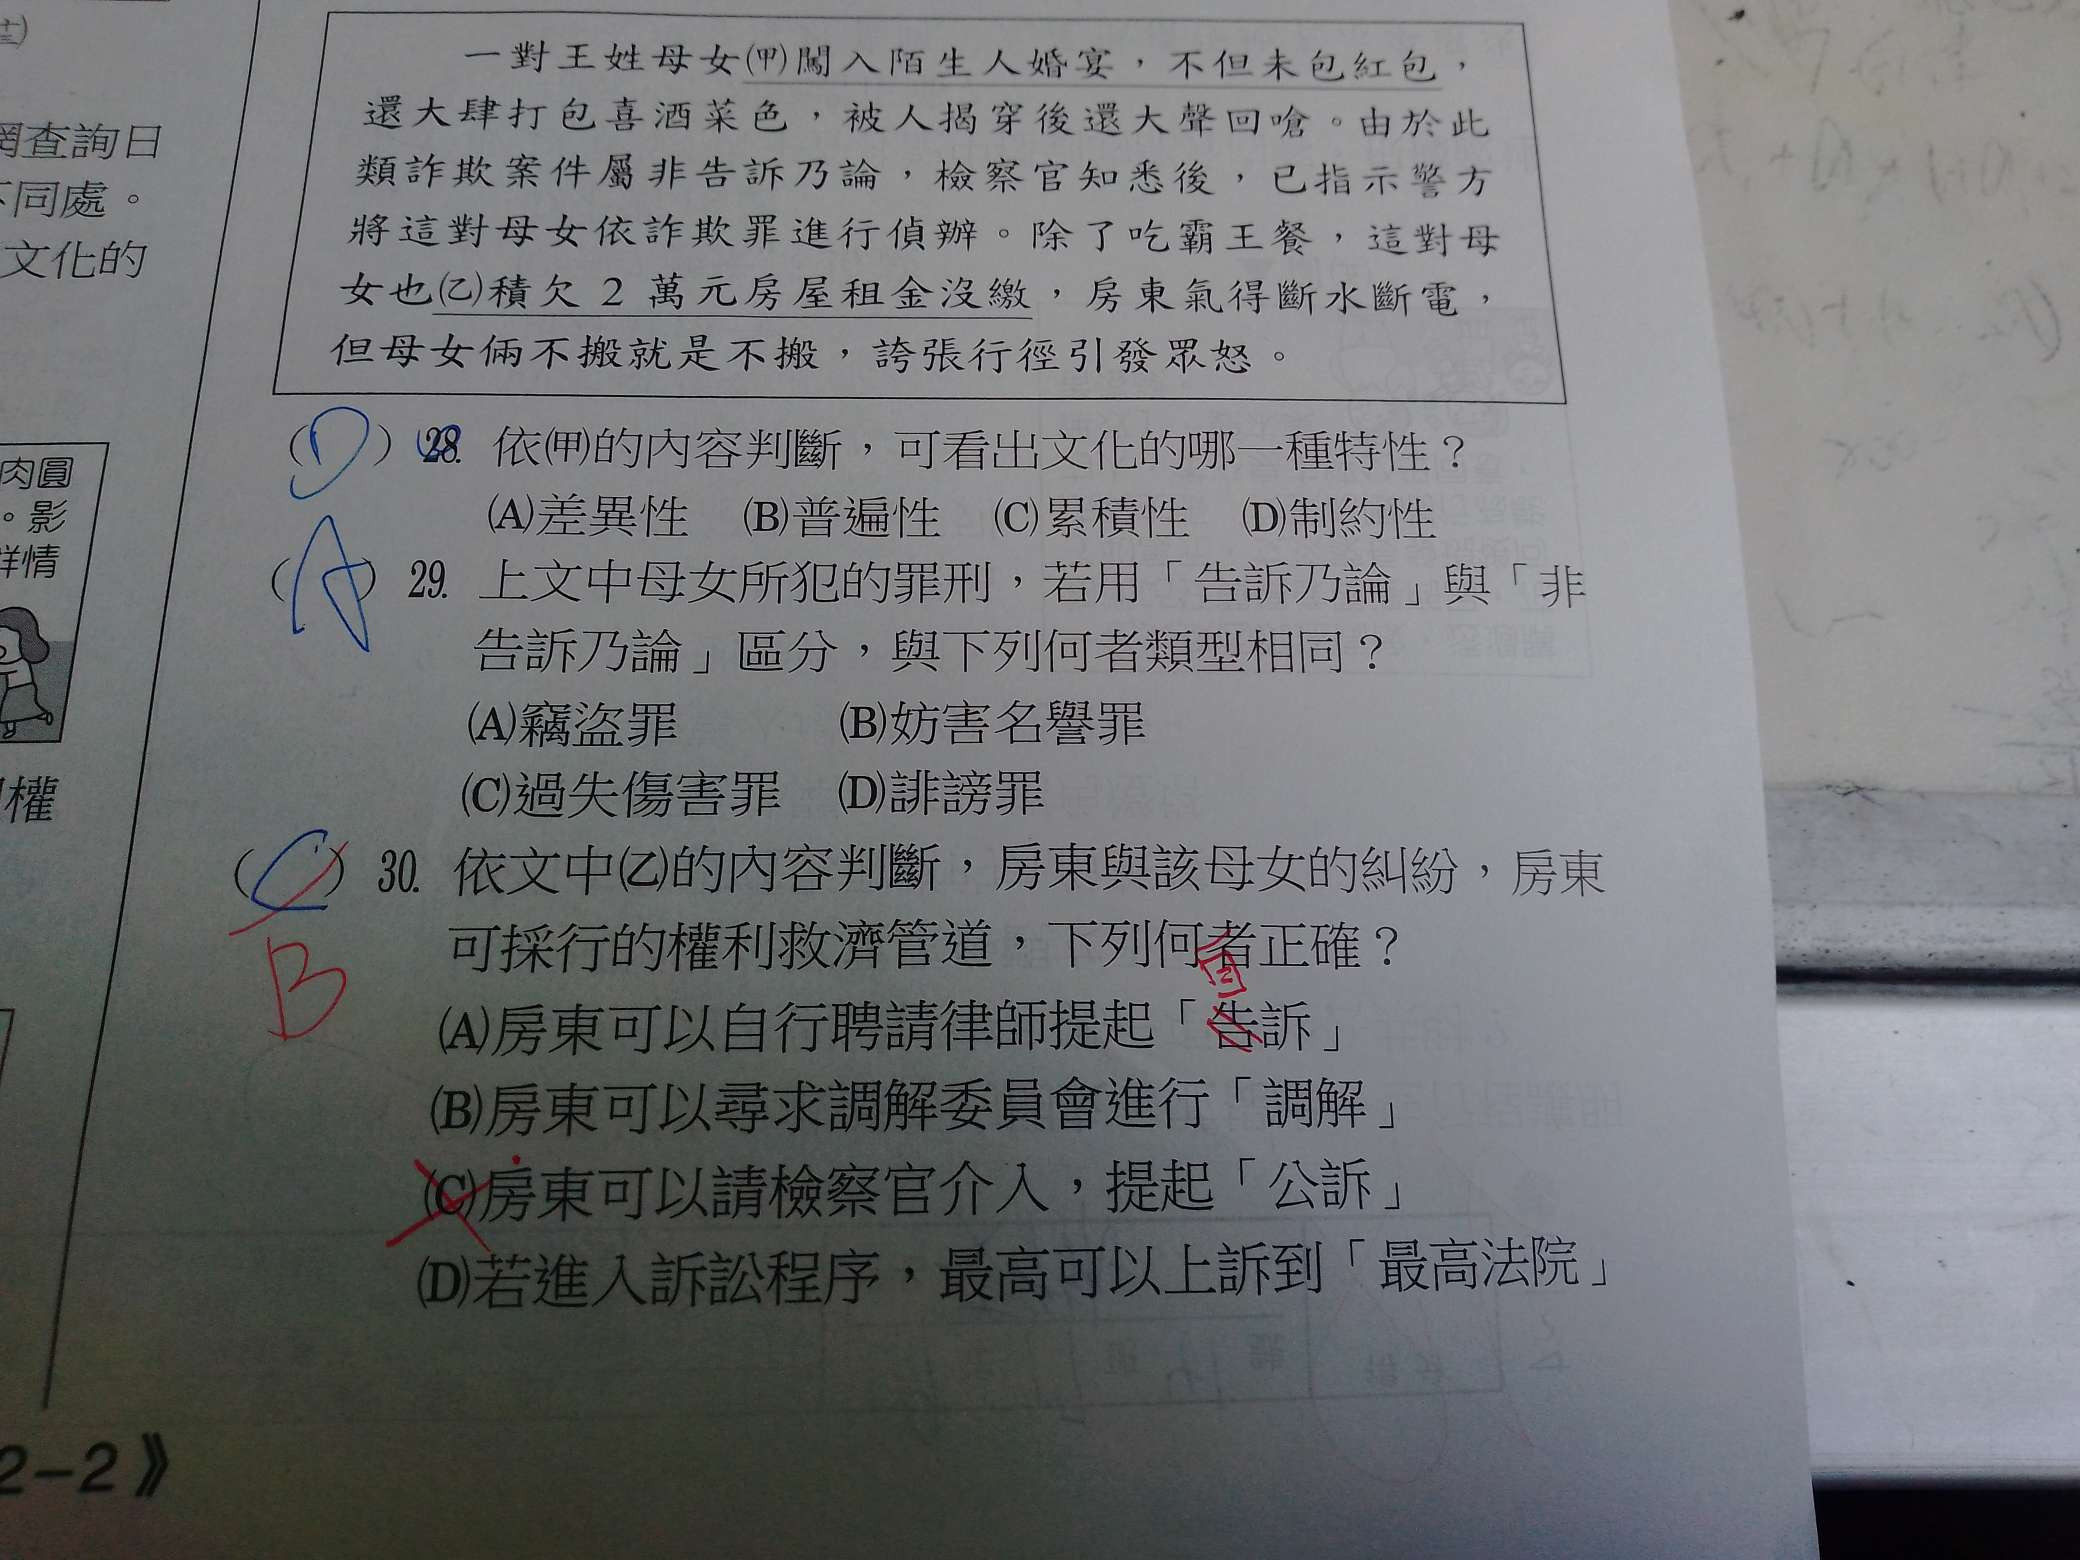 網查詢日
不同處。
文化的
肉圓
。影
詳情
權
2-2》
一對王姓母女㈙闖入陌生人婚宴，不但未包紅包，
還大肆打包喜酒菜色，被人揭穿後還大聲回嗆。由於此
類詐欺案件屬非告訴乃論，檢察官知悉後，已指示警方
將這對母女依詐欺罪進行偵辦。除了吃霸王餐，這對母
女也(乙)積欠2萬元房屋租金沒繳，房東氣得斷水斷電，
但母女倆不搬就是不搬，誇張行徑引發眾怒。
(D) 28. 依(甲)的內容判斷，可看出文化的哪一種特性？
(A)差異性 (B)普遍性 (C)累積性 (D)制約性
(A) 29. 上文中母女所犯的罪刑，若用「告訴乃論」與「非
告訴乃論」區分，與下列何者類型相同？
(A)竊盜罪 (B)妨害名譽罪
(C)過失傷害罪 (D)誹謗罪
(C) 30. 依文中(乙)的內容判斷，房東與該母女的糾紛，房東
B
可採行的權利救濟管道，下列何者正確？
(A)房東可以自行聘請律師提起「告訴」
(B)房東可以尋求調解委員會進行「調解」
(C)房東可以請檢察官介入，提起「公訴」
(D)若進入訴訟程序，最高可以上訴到「最高法院」